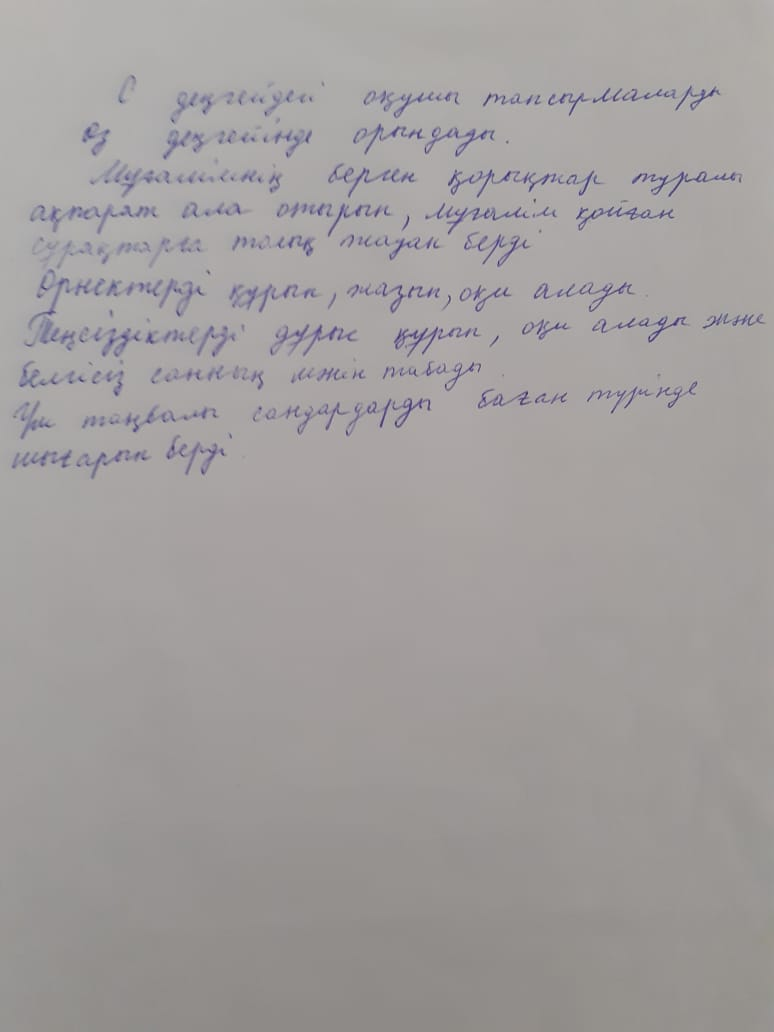 С деңгейдегі оқушы тапсырмаларды
өз деңгейінде орындады.
Мұғалімнің берген қорықтар туралы
ақпарат ала отырып, мұғалім қойған
сұрақтарға толық жауап берді
Өрнектерді құрып, жазып, оқи алады.
Теңсіздіктерді дұрыс құрып, оқи алады және
белгісіз санның мәнін табады.
Үш таңбалы сандардарды баған түрінде
шығарып берді.